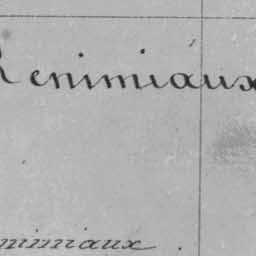 Renimiaux
nimiaux.